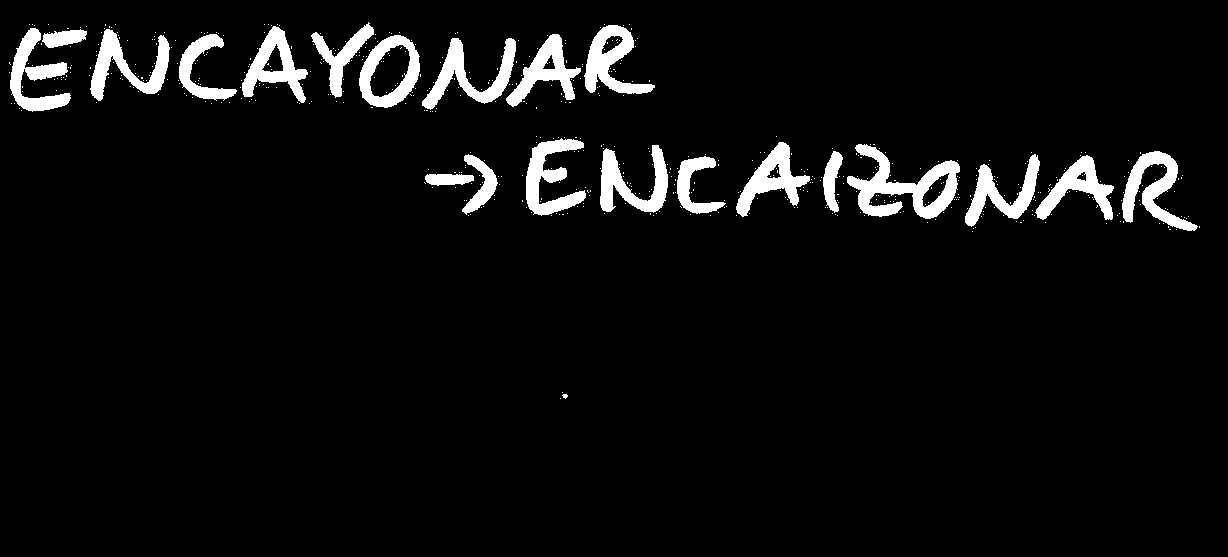 ENCAYONAR
→ ENCAIZONAR